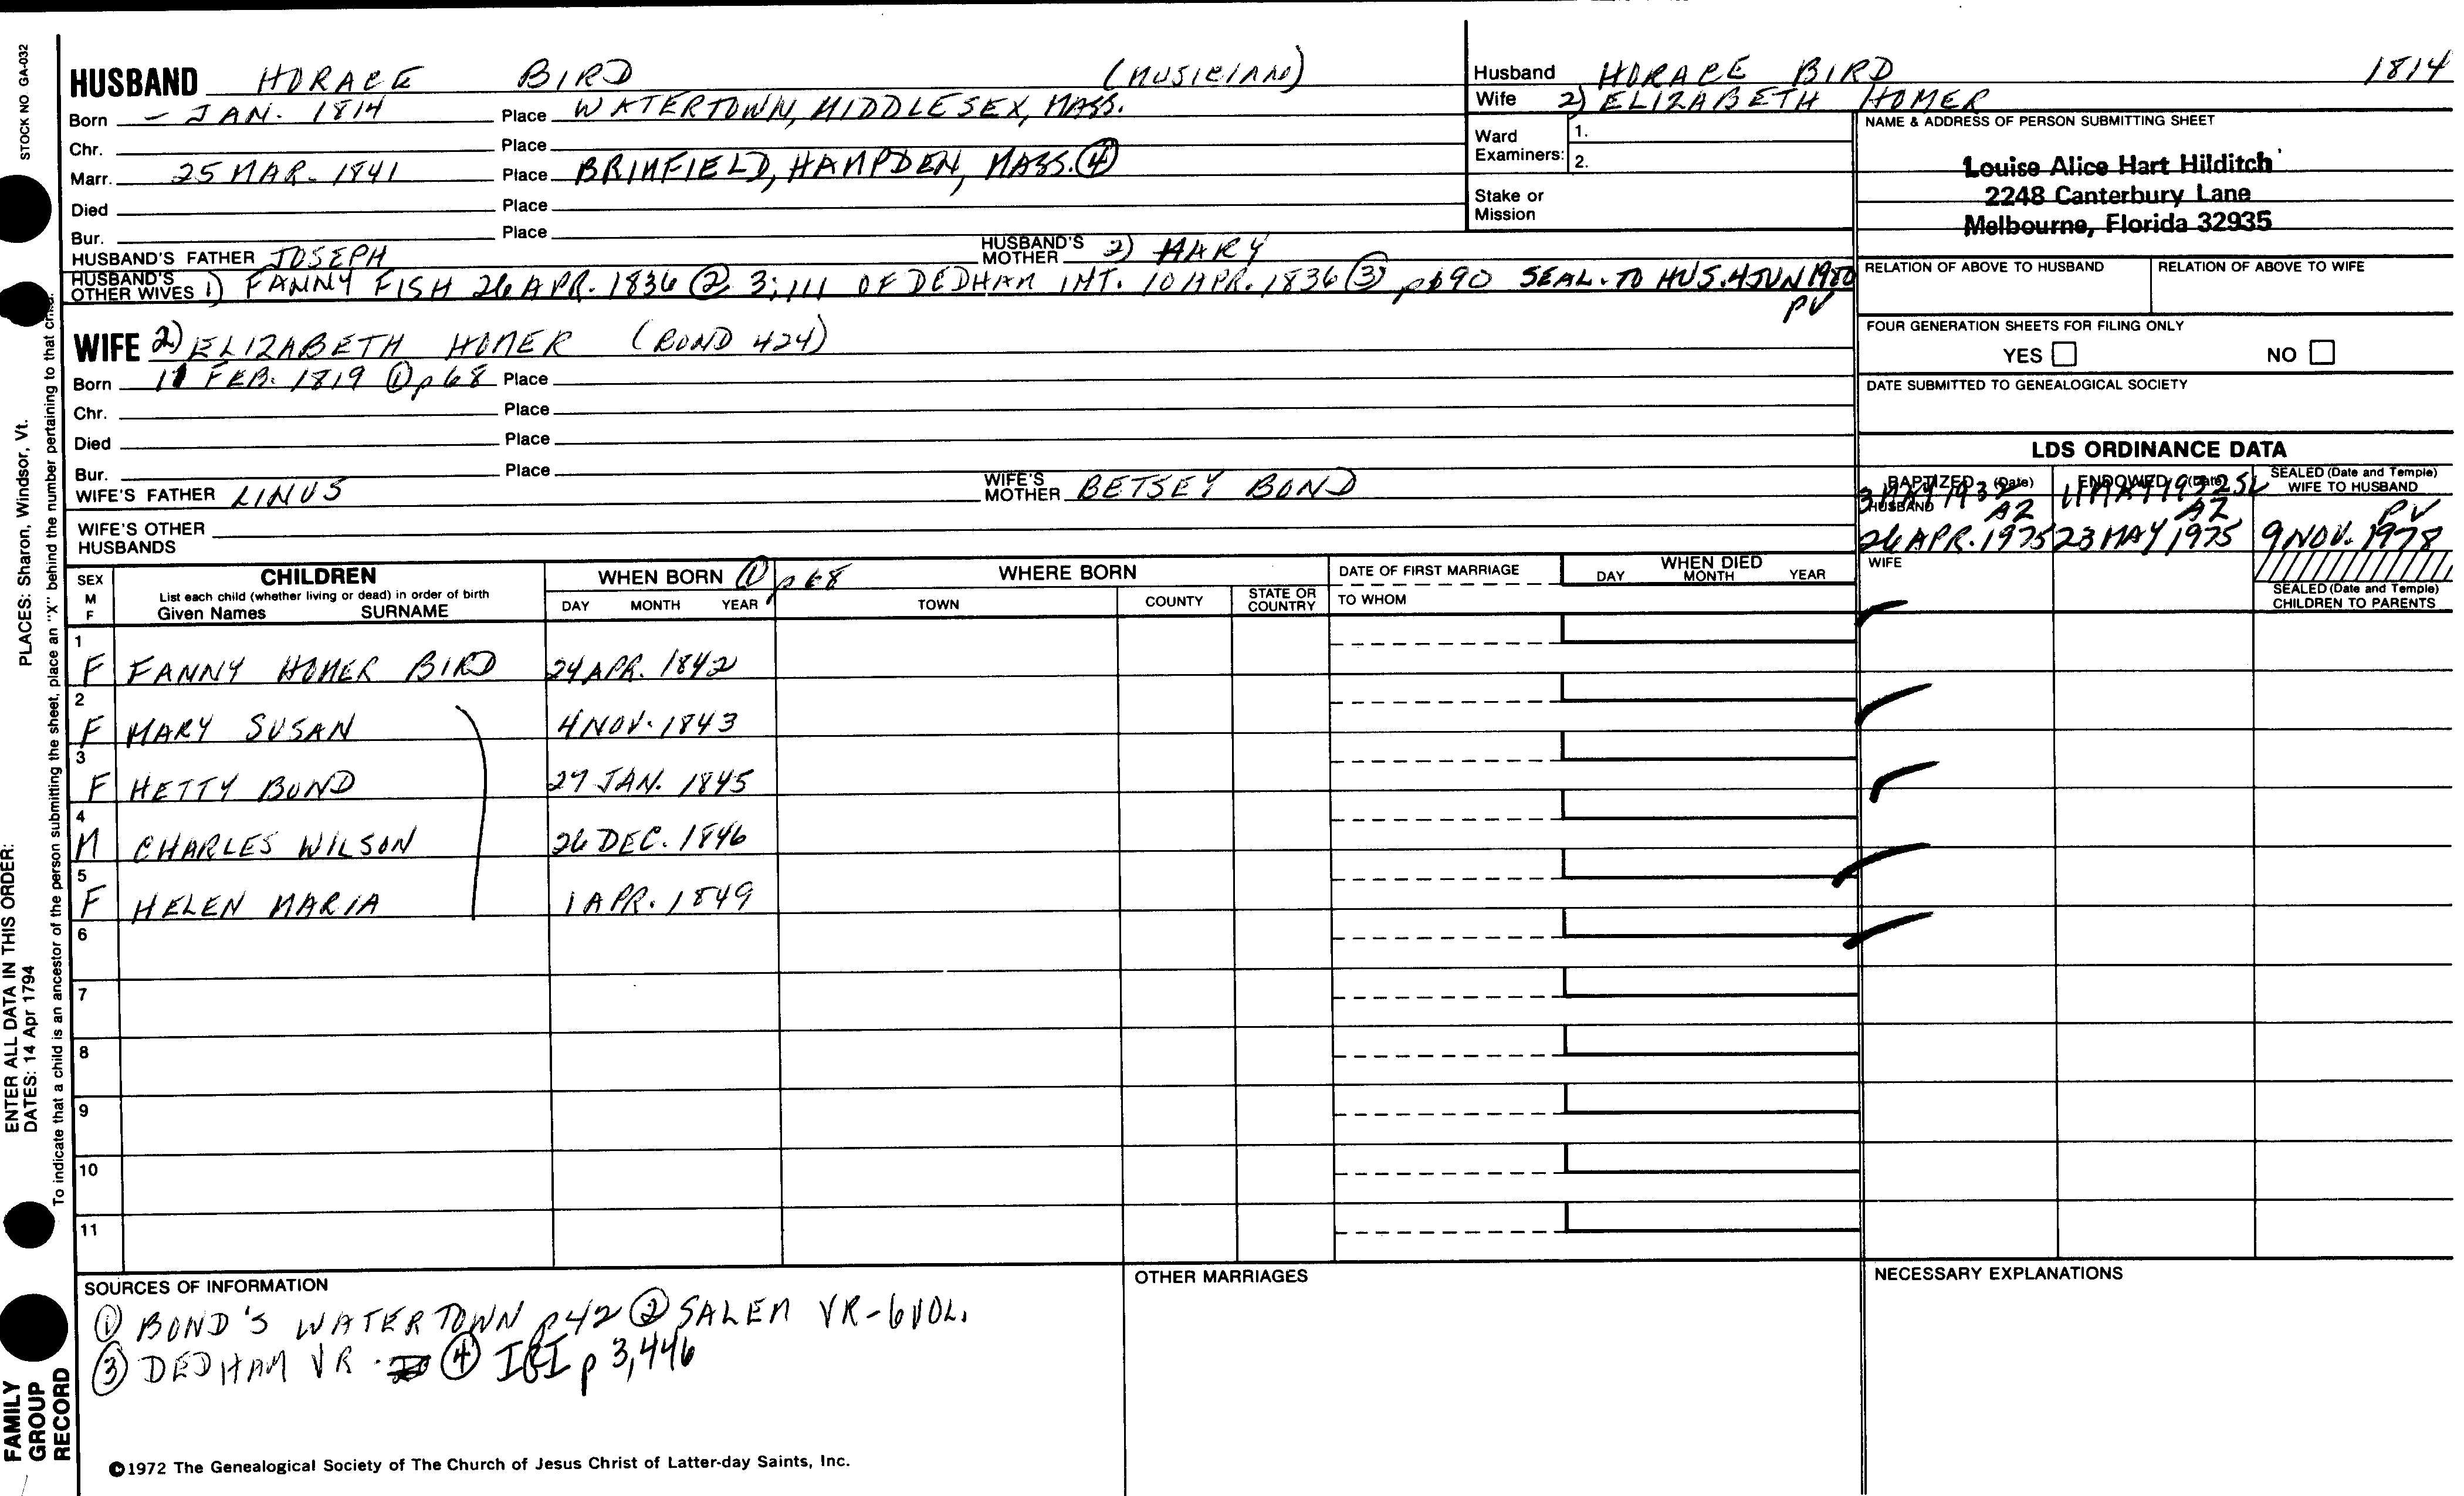 STOCK NO GA-032
HUSBAND HORACE BIRD (MUSICIAN)
Born - JAN. 1814 Place WATERTOWN, MIDDLESEX, MASS.
Chr. Place
Marr. 25 MAR. 1841 Place BRIMFIELD, HAMPDEN, MASS. ④
Died Place
Bur. Place
HUSBAND'S FATHER JOSEPH HUSBAND'S MOTHER 2) MARY
HUSBAND'S OTHER WIVES 1) FANNY FISH 26 APR. 1836 ② 3:111 OF DEDHAM INT. 10 APR. 1836 ③ p 90 SEAL. TO HUS. 4 JUN 1980
PV
Husband HORACE BIRD 1814
Wife 2) ELIZABETH HOMER
Ward Examiners: 1.
2.
Stake or Mission
NAME & ADDRESS OF PERSON SUBMITTING SHEET
Louise Alice Hart Hilditch
2248 Canterbury Lane
Melbourne, Florida 32935
RELATION OF ABOVE TO HUSBAND RELATION OF ABOVE TO WIFE
FOUR GENERATION SHEETS FOR FILING ONLY
YES NO
DATE SUBMITTED TO GENEALOGICAL SOCIETY
WIFE 2) ELIZABETH HOMER (BOND 424)
Born 11 FEB. 1819 ① p 68 Place
Chr. Place
Died Place
Bur. Place
WIFE'S FATHER LINUS WIFE'S MOTHER BETSEY BOND
WIFE'S OTHER HUSBANDS
LDS ORDINANCE DATA
BAPTIZED (Date) ENDOWED (Date) SEALED (Date and Temple) WIFE TO HUSBAND
HUSBAND 3 MAY 1932 11 MAY 1932 SL
AZ AZ PV
26 APR. 1975 23 MAY 1975 9 NOV. 1978
WIFE
SEALED (Date and Temple) CHILDREN TO PARENTS
SEX M F CHILDREN WHEN BORN ① p 68 WHERE BORN DATE OF FIRST MARRIAGE WHEN DIED
List each child (whether living or dead) in order of birth
Given Names SURNAME DAY MONTH YEAR TOWN COUNTY STATE OR COUNTRY TO WHOM DAY MONTH YEAR
1 F FANNY HOMER BIRD 24 APR. 1842
2 F MARY SUSAN 4 NOV. 1843
3 F HETTY BOND 27 JAN. 1845
4 M CHARLES WILSON 26 DEC. 1846
5 F HELEN MARIA 1 APR. 1849
6
7
8
9
10
11
SOURCES OF INFORMATION
① BOND'S WATERTOWN p 42 ② SALEM VR - 6 VOL.
③ DEDHAM VR. ④ IGI p 3,446
OTHER MARRIAGES
NECESSARY EXPLANATIONS
©1972 The Genealogical Society of The Church of Jesus Christ of Latter-day Saints, Inc.
FAMILY GROUP RECORD
ENTER ALL DATA IN THIS ORDER:
DATES: 14 Apr 1794 PLACES: Sharon, Windsor, Vt.
To indicate that a child is an ancestor of the person submitting the sheet, place an "X" behind the number pertaining to that